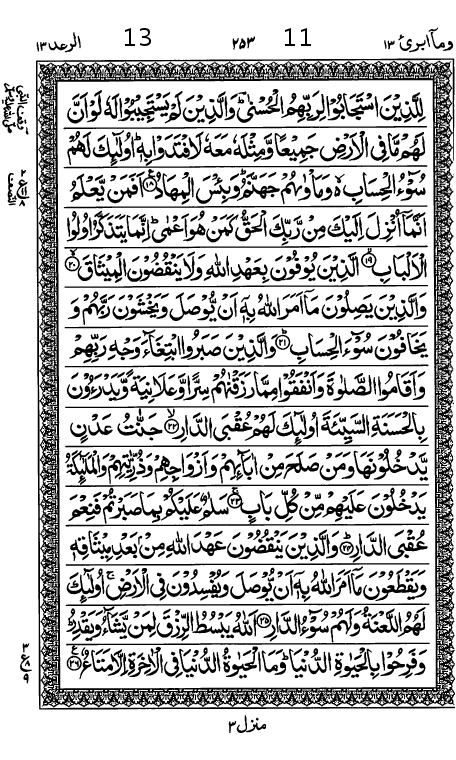 وما ابرئ ١٣ 11 ٢٥٣ 13 الرعد ١٣
لِلَّذِيْنَ اسْتَجَابُوْا لِرَبِّهِمُ الْحُسْنٰىؔ وَالَّذِيْنَ لَمْ يَسْتَجِيْبُوْا لَهٗ لَوْ اَنَّ
لَهُمْ مَّا فِي الْاَرْضِ جَمِيْعًا وَّمِثْلَهٗ مَعَهٗ لَافْتَدَوْا بِهٖ ؕ اُولٰٓئِكَ لَهُمْ
سُوْٓءُ الْحِسَابِ ۙ وَمَاْوٰىهُمْ جَهَنَّمُ ؕ وَبِئْسَ الْمِهَادُ ۧ‏ ﴿۱۸﴾ اَفَمَنْ يَّعْلَمُ
اَنَّمَآ اُنْزِلَ اِلَيْكَ مِنْ رَّبِّكَ الْحَقُّ كَمَنْ هُوَ اَعْمٰى ؕ اِنَّمَا يَتَذَكَّرُ اُولُوا
الْاَلْبَابِ ۙ‏ ﴿۱۹﴾ الَّذِيْنَ يُوْفُوْنَ بِعَهْدِ اللّٰهِ وَلَا يَنْقُضُوْنَ الْمِيْثَاقَ ۙ‏ ﴿۲۰﴾
وَالَّذِيْنَ يَصِلُوْنَ مَآ اَمَرَ اللّٰهُ بِهٖٓ اَنْ يُّوْصَلَ وَيَخْشَوْنَ رَبَّهُمْ وَ
يَخَافُوْنَ سُوْٓءَ الْحِسَابِ ؕ‏ ﴿۲۱﴾ وَالَّذِيْنَ صَبَرُوا ابْتِغَآءَ وَجْهِ رَبِّهِمْ
وَاَقَامُوا الصَّلٰوةَ وَاَنْفَقُوْا مِمَّا رَزَقْنٰهُمْ سِرًّا وَّعَلَانِيَةً وَّيَدْرَءُوْنَ
بِالْحَسَنَةِ السَّيِّئَةَ اُولٰٓئِكَ لَهُمْ عُقْبَى الدَّارِ ۙ‏ ﴿۲۲﴾ جَنّٰتُ عَدْنٍ
يَّدْخُلُوْنَهَا وَمَنْ صَلَحَ مِنْ اٰبَآئِهِمْ وَاَزْوَاجِهِمْ وَذُرِّيّٰتِهِمْ وَالْمَلٰٓئِكَةُ
يَدْخُلُوْنَ عَلَيْهِمْ مِّنْ كُلِّ بَابٍ ۚ‏ ﴿۲۳﴾ سَلٰمٌ عَلَيْكُمْ بِمَا صَبَرْتُمْ فَنِعْمَ
عُقْبَى الدَّارِ ؕ‏ ﴿۲۴﴾ وَالَّذِيْنَ يَنْقُضُوْنَ عَهْدَ اللّٰهِ مِنْۢ بَعْدِ مِيْثَاقِهٖ
وَيَقْطَعُوْنَ مَآ اَمَرَ اللّٰهُ بِهٖٓ اَنْ يُّوْصَلَ وَيُفْسِدُوْنَ فِي الْاَرْضِ ۙ اُولٰٓئِكَ
لَهُمُ اللَّعْنَةُ وَلَهُمْ سُوْٓءُ الدَّارِ‏ ﴿۲۵﴾ اَللّٰهُ يَبْسُطُ الرِّزْقَ لِمَنْ يَّشَآءُ وَيَقْدِرُ ؕ
وَفَرِحُوْا بِالْحَيٰوةِ الدُّنْيَا ؕ وَمَا الْحَيٰوةُ الدُّنْيَا فِي الْاٰخِرَةِ اِلَّا مَتَاعٌ ۧ‏ ﴿۲۶﴾
منزل ٣